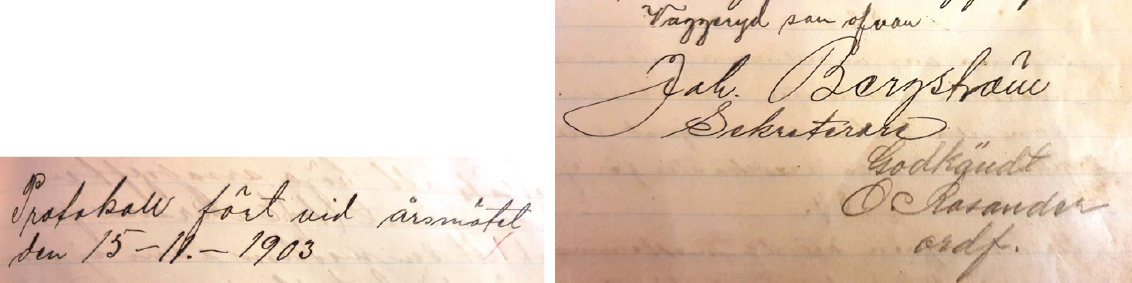 Protokoll fört vid årsmötet
den 15-11.-1903
Vaggeryd som ofvan
Joh. Bergström
Sekreterare
Godkändt
O. Rosander
ordf.